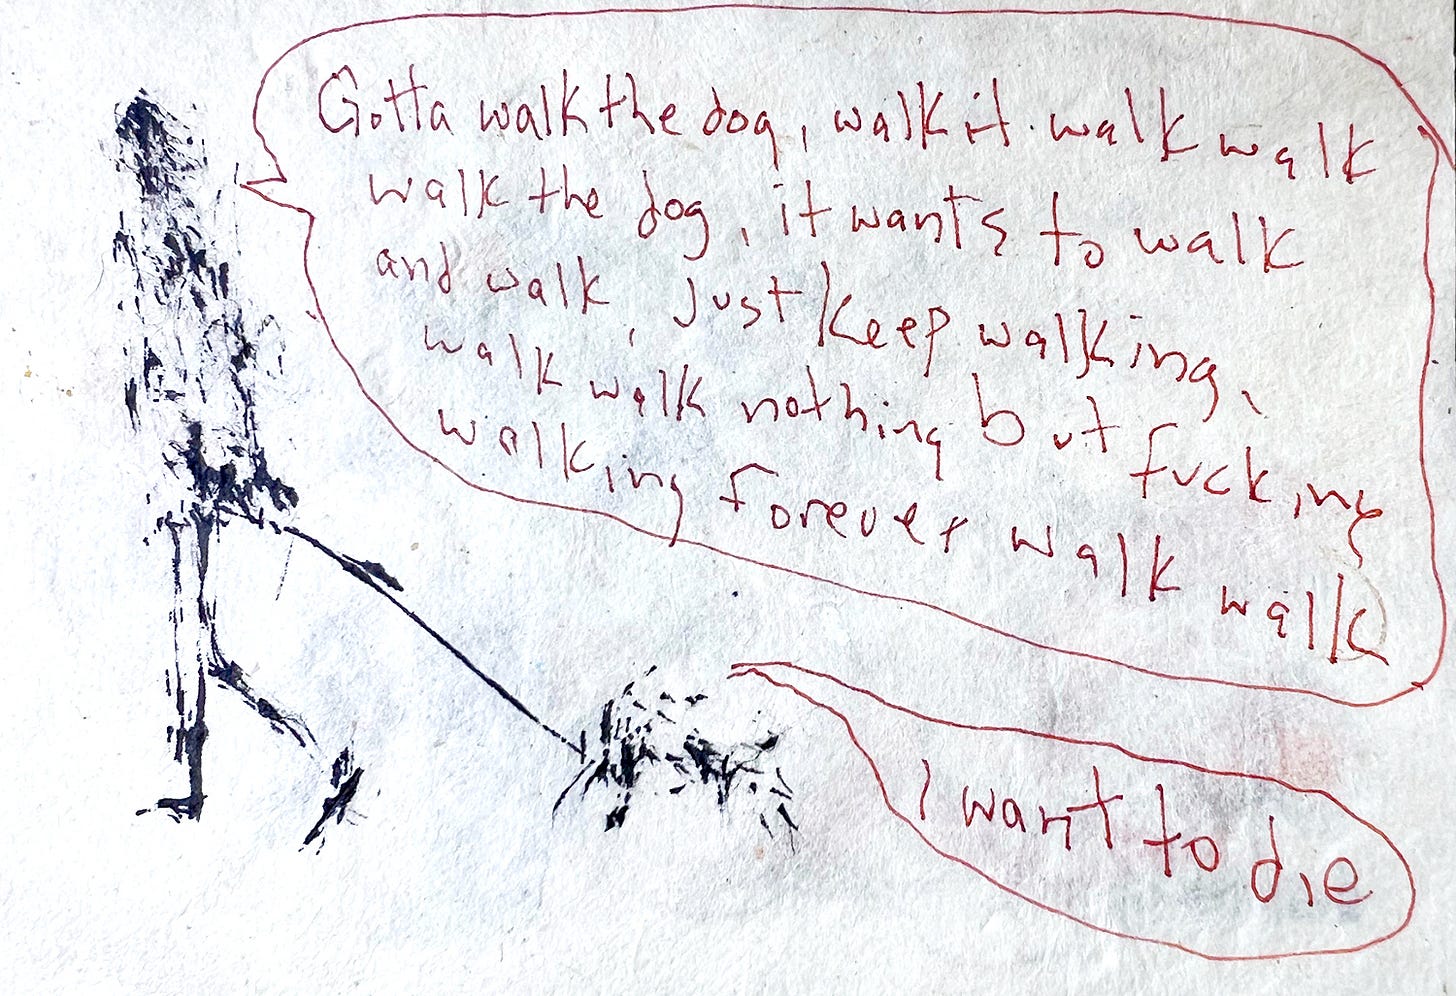 Gotta walk the dog, walk it. walk walk
walk the dog, it wants to walk
and walk, just keep walking,
walk walk nothing but fucking
walking forever walk walk
I want to die